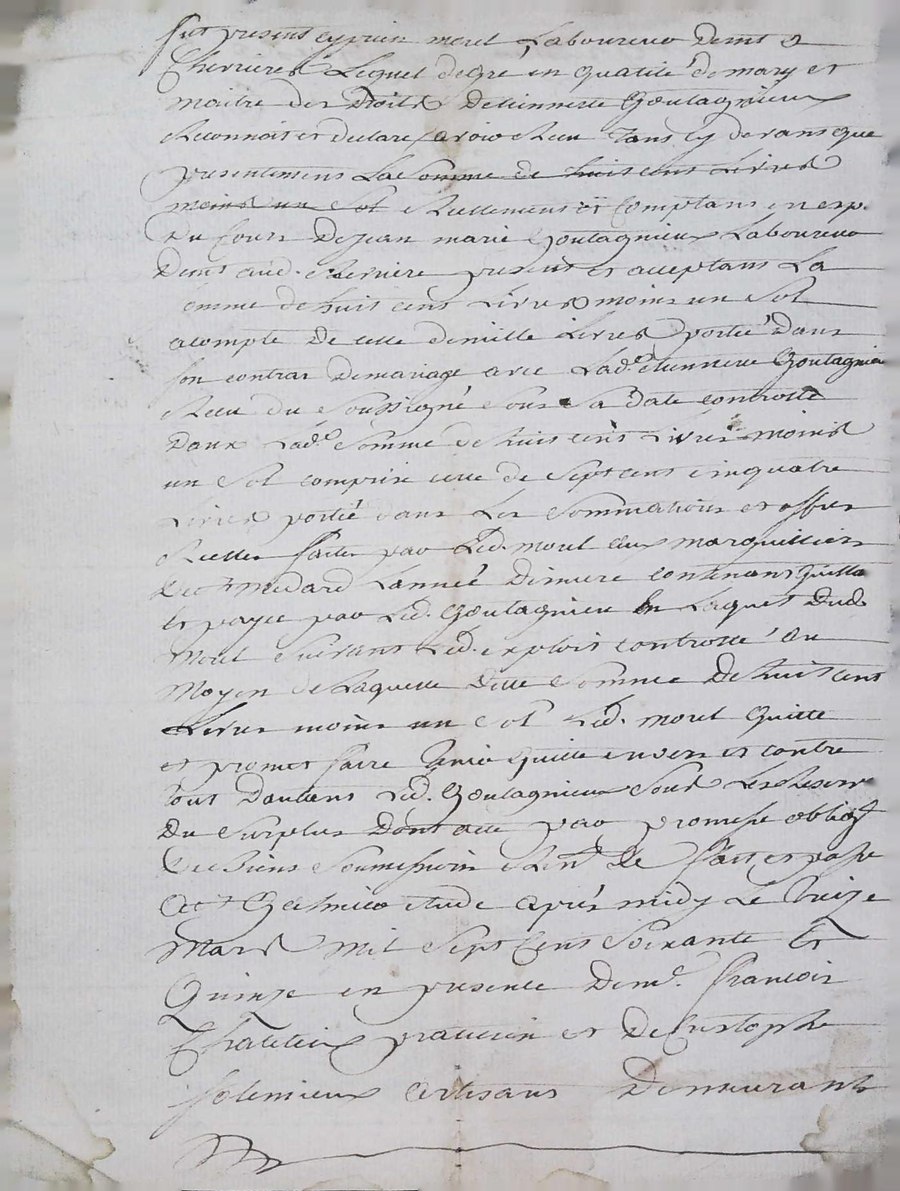 fut present cyprien morel Laboureur demt a
Cherrieres Lequel de gré en qualité de mary et
maitre des droits D'etiennette Goutagnieux
Reconnoit et declare avoir Receu tans cy devans que
presentemens La Somme de huit cens Livres
moins un Sol Reellemens et Comptans en esp.
du cours De jean marie Goutagnieux Laboureur
demt aud. cherriere presens et acceptans La
somme de huit cens Livres moins un Sol
acompte De celle de mille Livres portée dans
son contrat de mariage avec Lad.e etiennette Goutagnieu
Receu du Soussigné Sous Sa date controllé
dans Lad.e Somme de huit cens Livres moins
un Sol comprise celle de Sept cens cinquatre
Livres portée dans Les Sommations et offres
Reelles faites par Led. morel aux marguilliers
de St medard L'année derniere contenans quitta
et payee par Led. Goutagnieu a Laquet dud.
Morel Suivant Led. exploit controllé Au
Moyen de Laquelle ditte Somme De huit cens
Livres moins un Sol Led. morel quitte
et promet faire tenir quitte envers et contre
tous D'autiers Led. Goutagnieux Sous Les Reserv
du Surplus Dont acte par promesse obligt.
de biens Soumission Ren.on de fait et passé
a St Galmier étude après midy Le treize
Mars mil Sept Cens Soixante Et
Quinze en presence de m.e francois
Chatelus praticien et De Cristophe
Solemieux artisans Demeurant